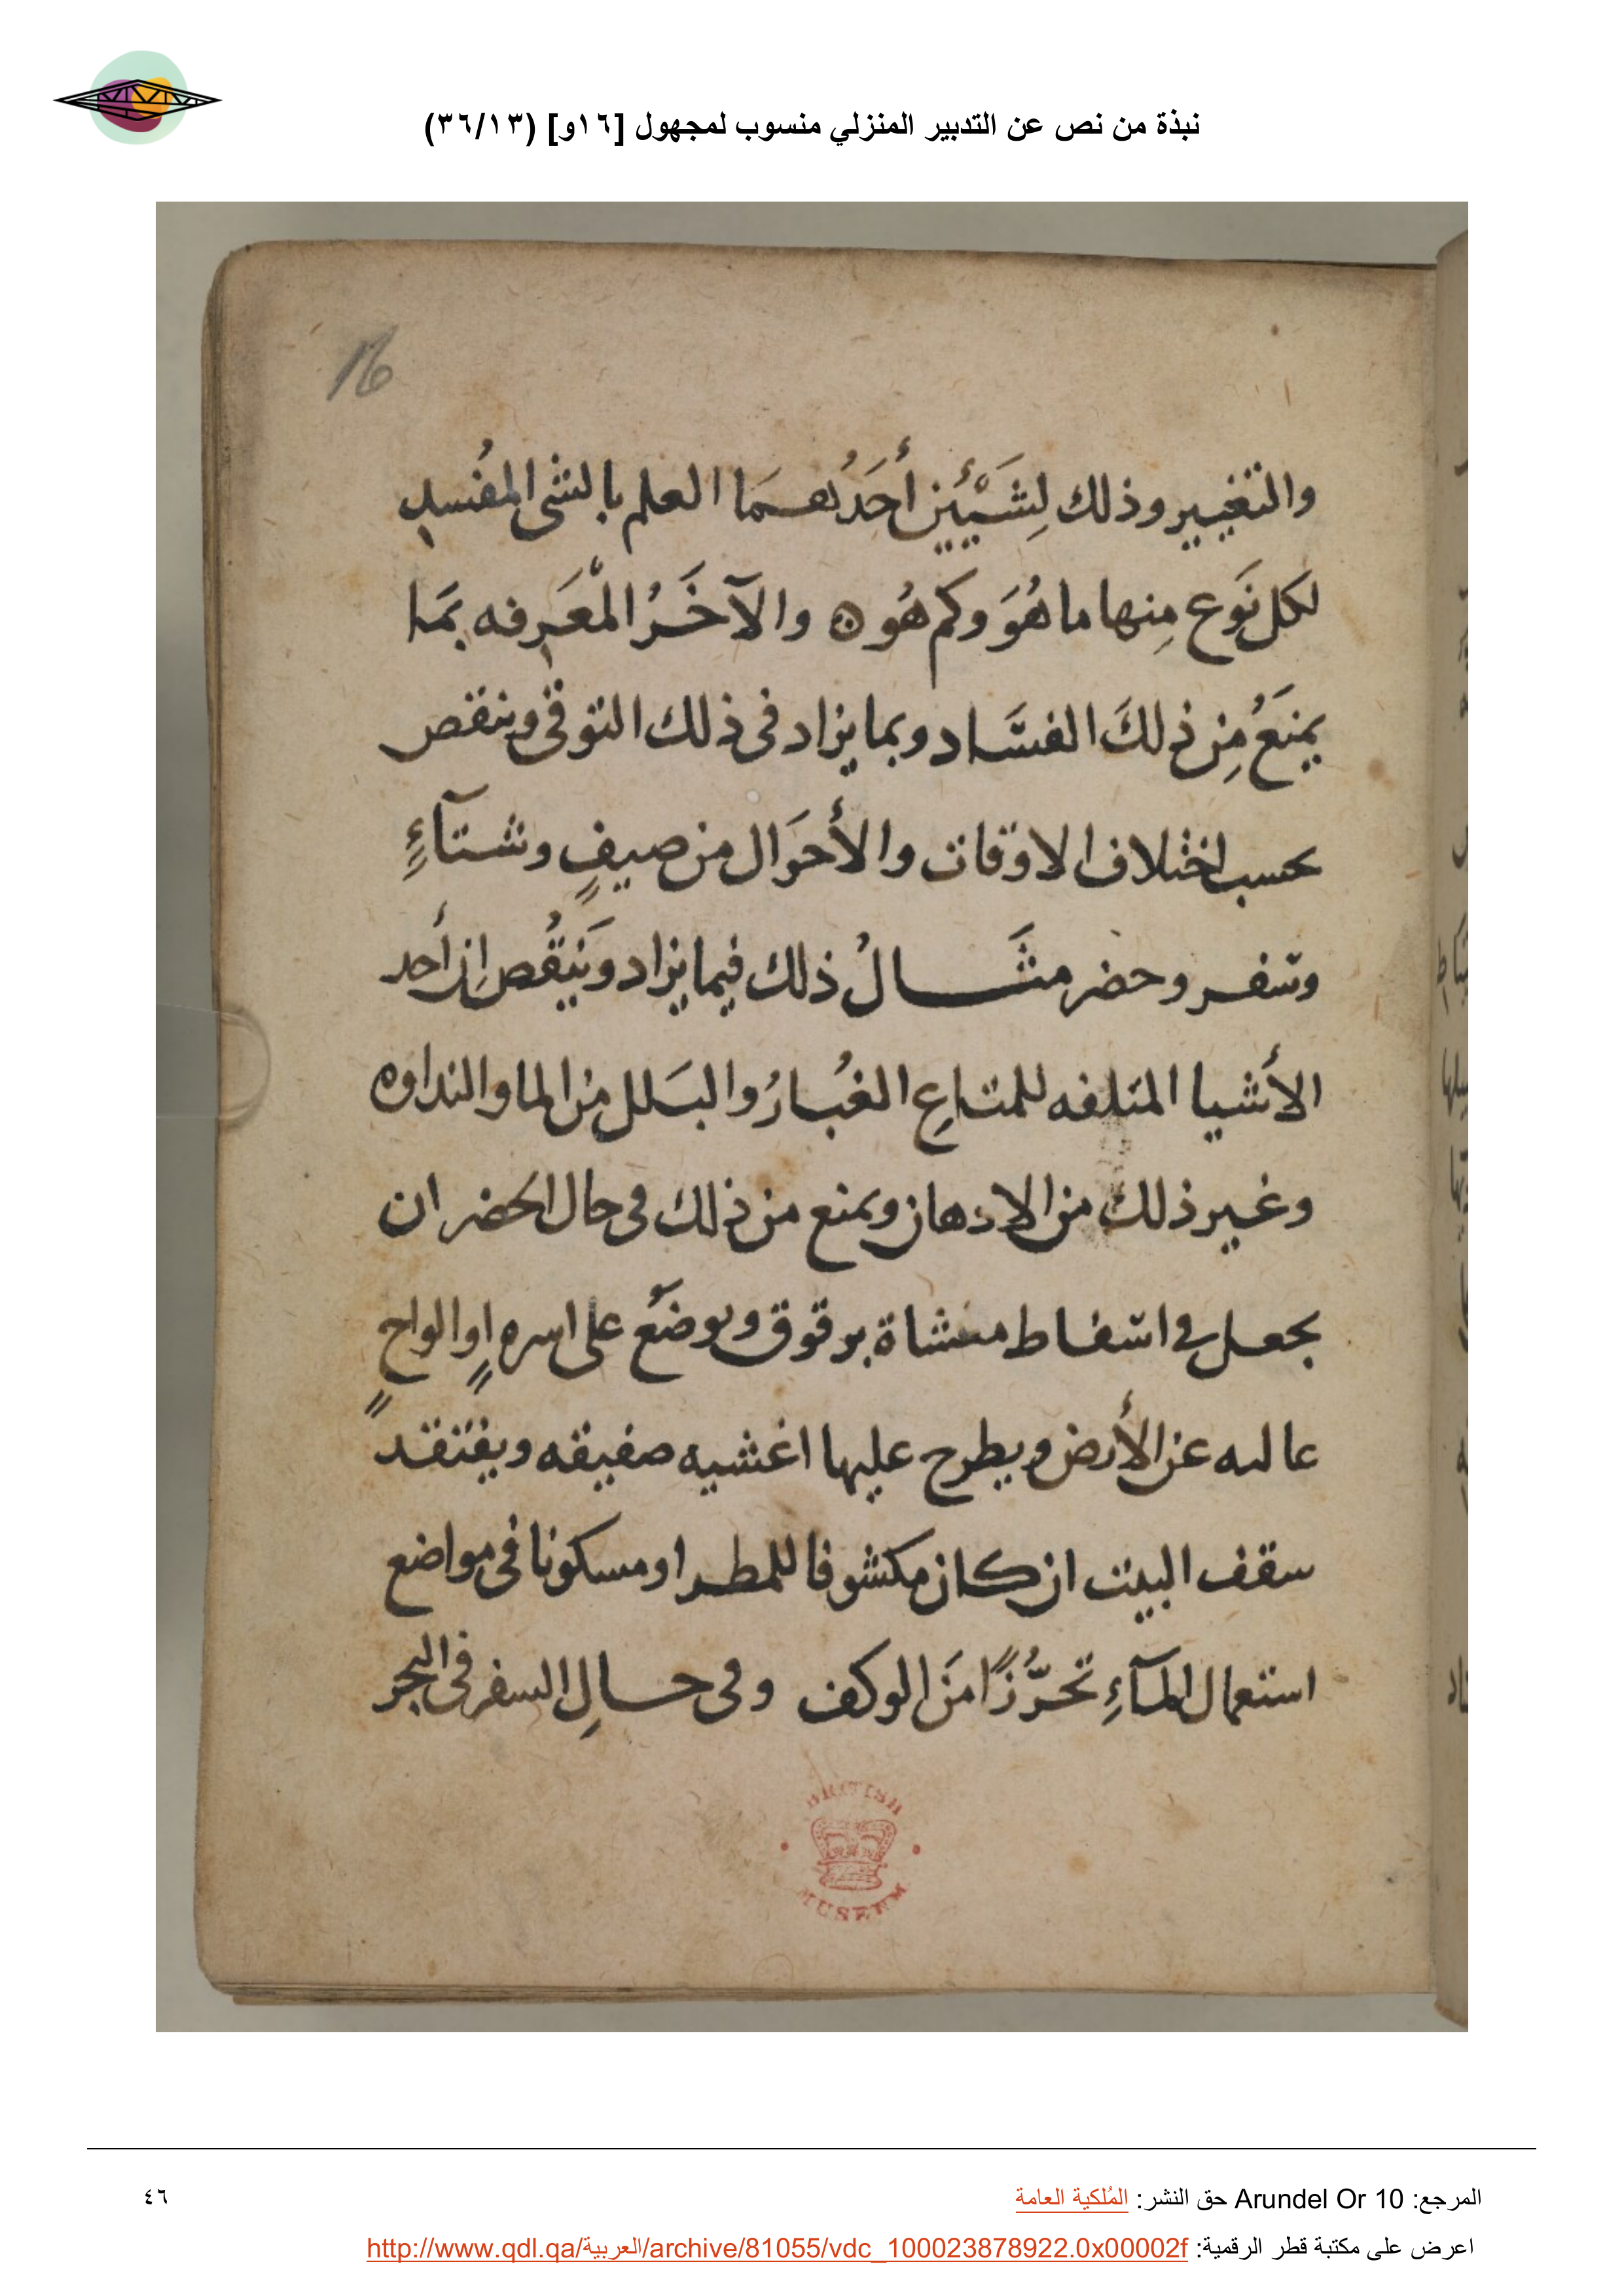 نبذة من نص عن التدبير المنزلي منسوب لمجهول [١٦و] (٣٦/١٣)
16
والتغيير وذلك لِشَيْئَين أَحَدُهمَا العلم بالشى المُفسِد
لكل نَوع مِنها ما هُوَ وكم هُو ۞ والآخَرُ المْعَرِفه بمَا
يمنَعُ مِن ذلكَ الفسَاد وبما يزاد فى ذلك التوقى وينقص
بحسب اختلاف الاوقات والأحوَال من صيفٍ وشتآءٍ
وسفر وحضر مثَالُ ذلك فيما يزاد وَينقُص اِن أحد
الأشيا المتلفه للمتاعِ الغُبارُ والبَلل من الما والنداوه
وغير ذلك من الادهان ويمنع من ذلك فى حال الحضر ان
يجعل فى اسفاط مغشاة برقوق ويوضَع على اسره اوٍ الواحٍ
عاليه عن الأرض ويطرح عليها اغشيه صفيقه ويفتقد
سقف البيت ان كان مكشوفا للمطر او مسكونا فى مواضع
استعمال المآءِ تحرُّزًا منَ الوكف وفى حالِ السفر فى البحر
BRITISH
MUSEUM
المرجع: Arundel Or 10 حق النشر: المُلكية العامة
٤٦
اعرض على مكتبة قطر الرقمية: http://www.qdl.qa/العربية/archive/81055/vdc_100023878922.0x00002f